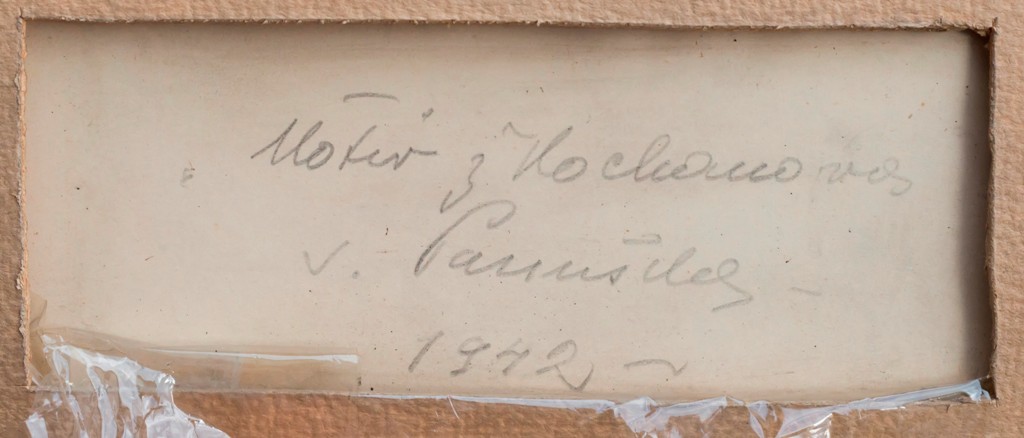 Motiv z Kochanova
v. Panuška –
1942 –